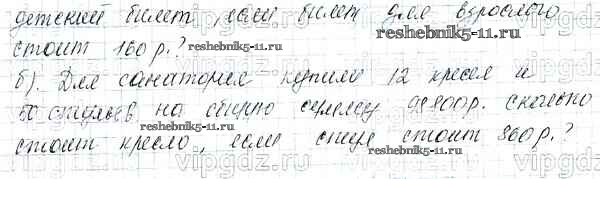 детский билет, если билет для взрослого
стоит 160 р.?
reshebnik5-11.ru
reshebnik5-11.ru
б). Для санатория купили 12 кресел и
50 стульев на общую сумму 98800р. сколько
reshebnik5-11.ru
стоит кресло, если стул стоит 860 р.?
reshebnik5-11.ru
vipgdz.ru vipgdz.ru vipgdz.ru